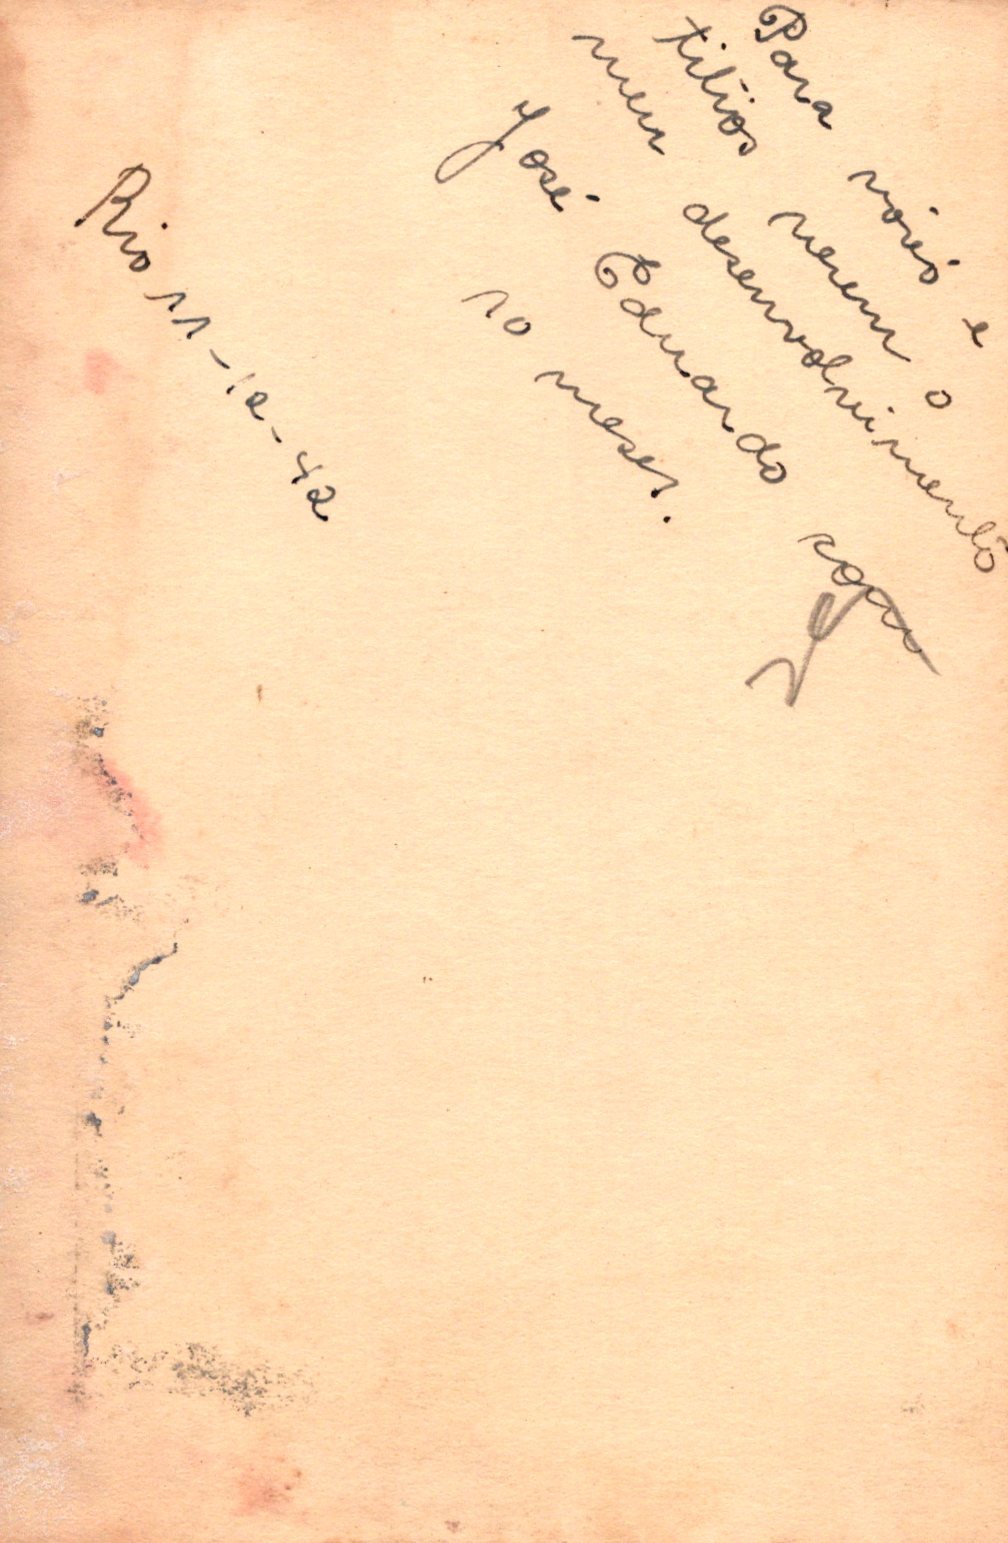 Para vovó e
titios verem o
meu desenvolvimento
José Eduardo
10 meses.
Rio 11-12-42